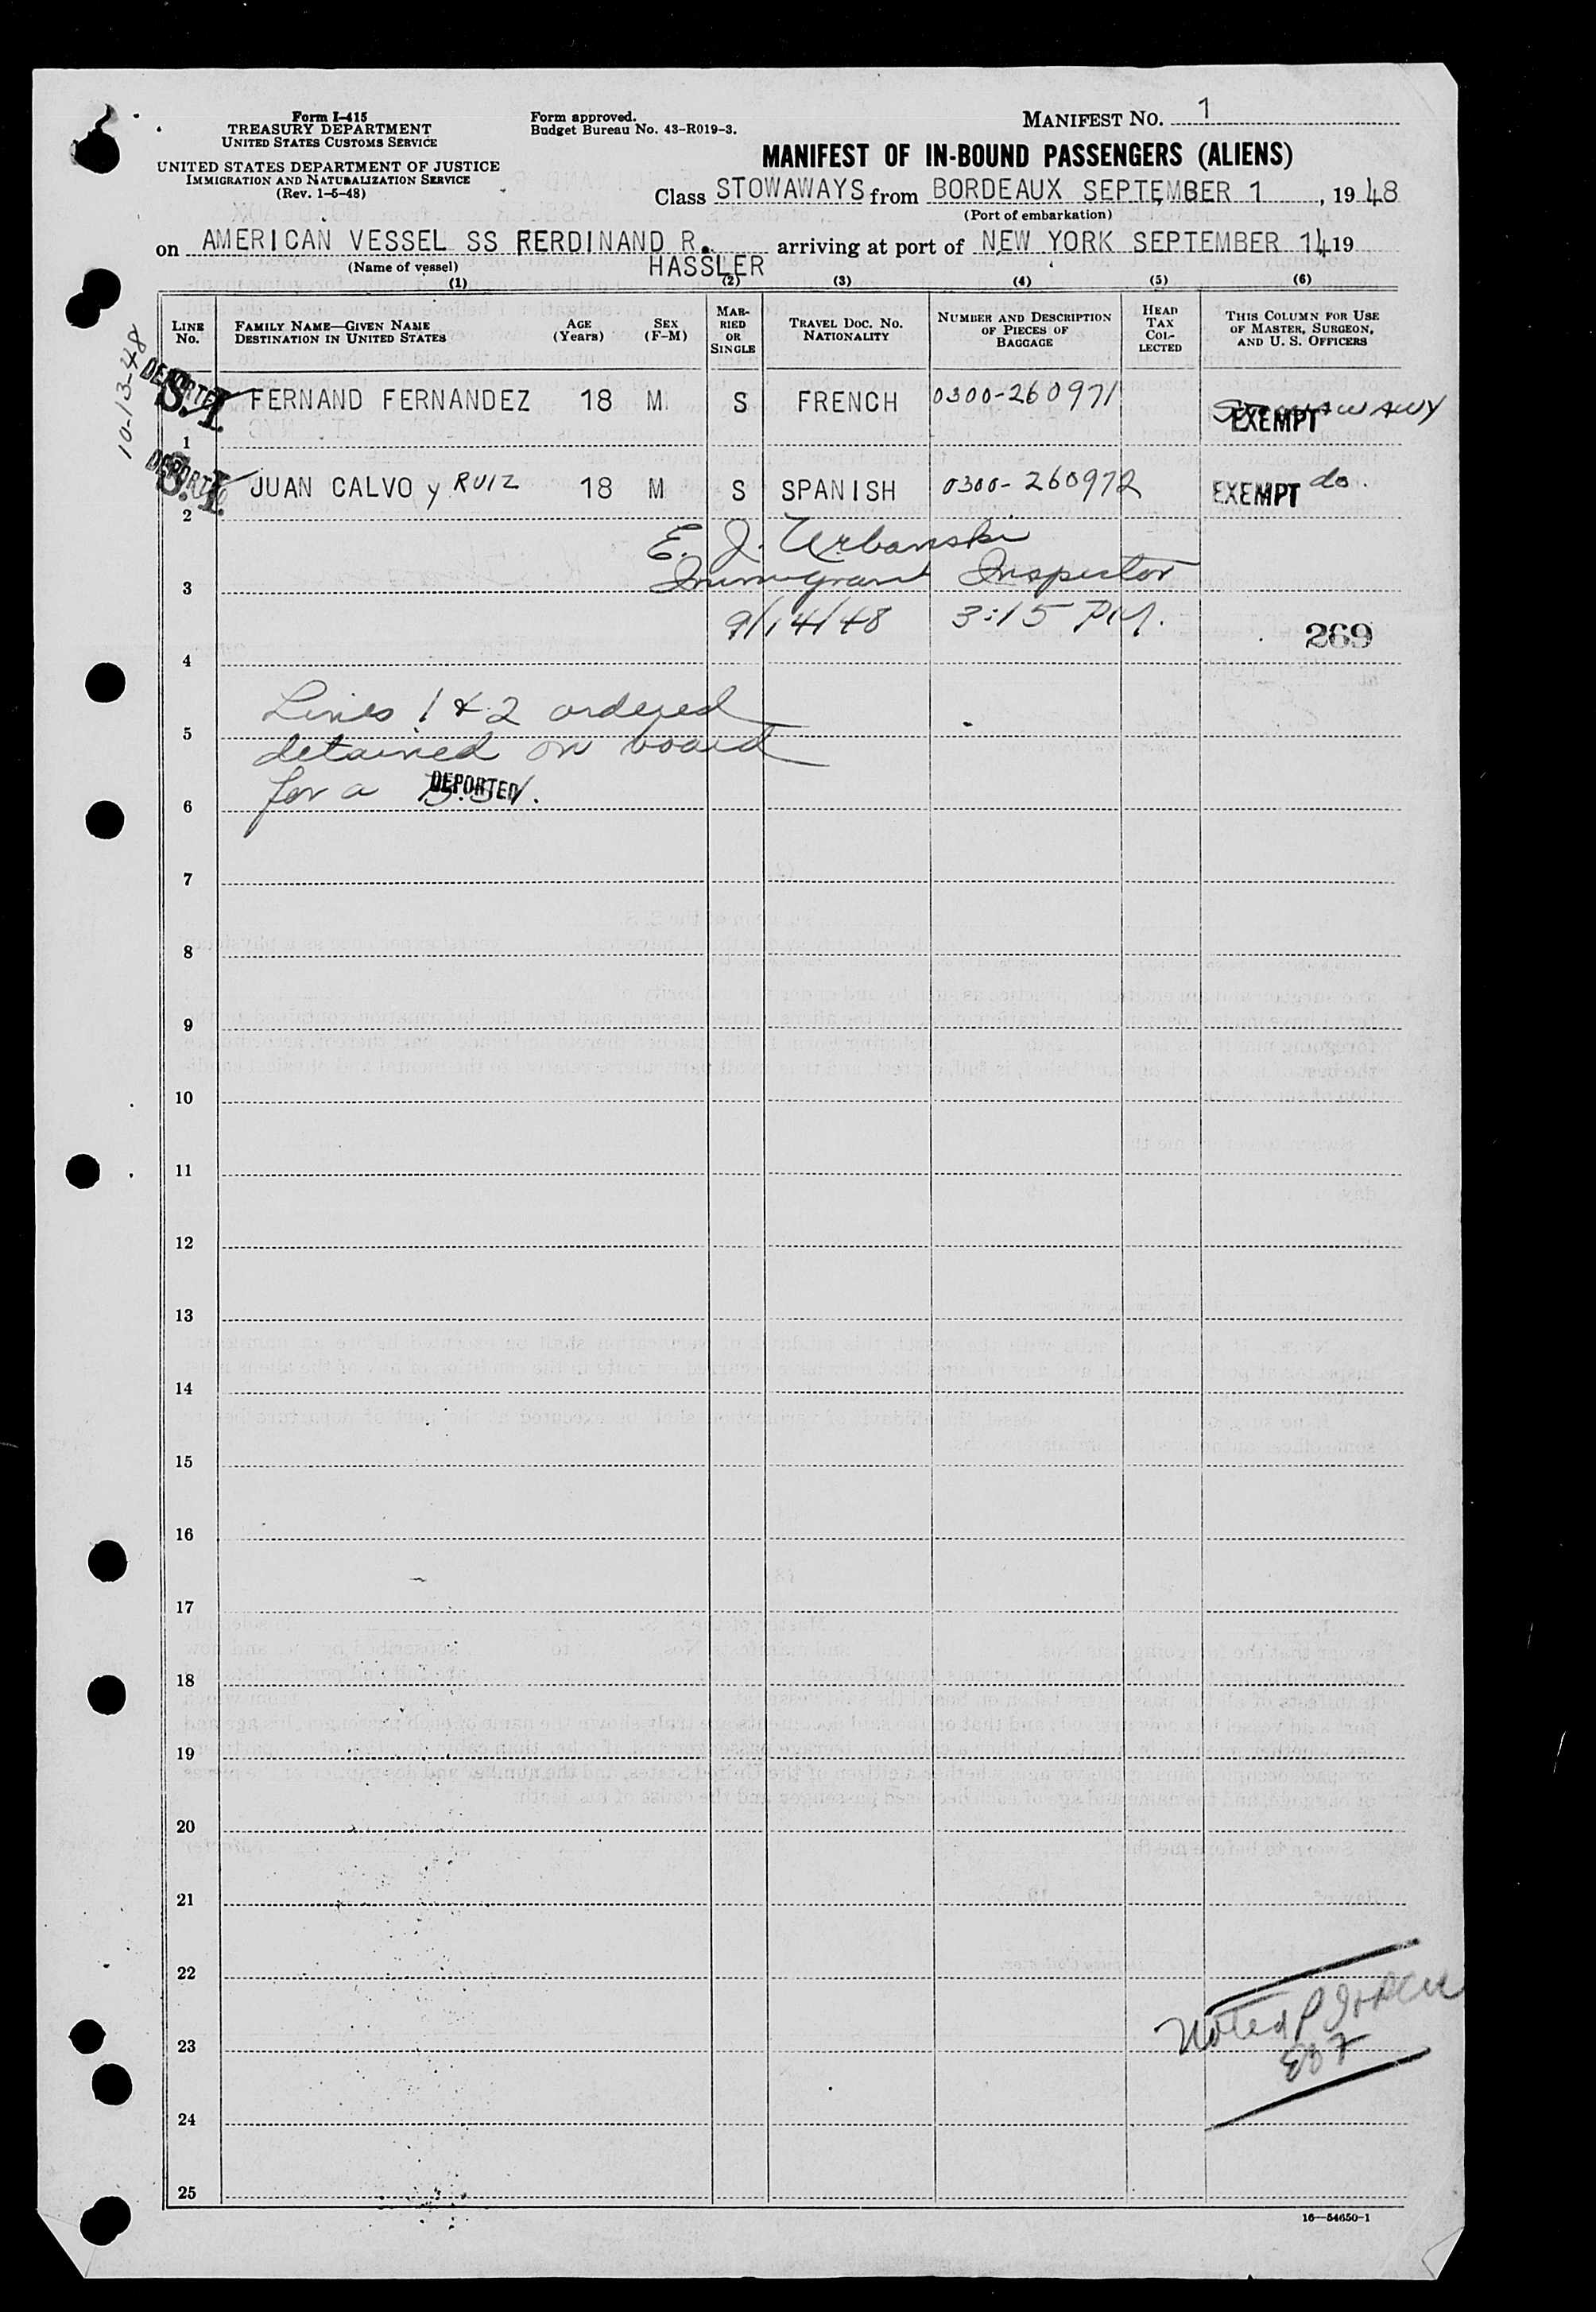 Form I-415
TREASURY DEPARTMENT
UNITED STATES CUSTOMS SERVICE
UNITED STATES DEPARTMENT OF JUSTICE
IMMIGRATION AND NATURALIZATION SERVICE
(Rev. 1-5-48)
Form approved.
Budget Bureau No. 43-R019-3.
MANIFEST NO. 1
MANIFEST OF IN-BOUND PASSENGERS (ALIENS)
Class STOWAWAYS from BORDEAUX SEPTEMBER 1, 1948
(Port of embarkation)
on AMERICAN VESSEL SS FERDINAND R. arriving at port of NEW YORK SEPTEMBER 14 19
HASSLER
(Name of vessel)
(1) (2) (3) (4) (5) (6)
LINE NO.
FAMILY NAME—GIVEN NAME
DESTINATION IN UNITED STATES
AGE (Years)
SEX (F-M)
MARRIED OR SINGLE
TRAVEL DOC. NO.
NATIONALITY
NUMBER AND DESCRIPTION OF PIECES OF BAGGAGE
HEAD TAX COLLECTED
THIS COLUMN FOR USE OF MASTER, SURGEON, AND U. S. OFFICERS
10-13-48
DEPORTED
S.I. FERNAND FERNANDEZ 18 M S FRENCH 0300-260971 EXEMPT
1
DEPORTED
S.I. JUAN CALVO y RUIZ 18 M S SPANISH 0300-260972 EXEMPT do.
2
E. J. Urbanski
Immigrant Inspector
3
9/14/48 3:15 PM.
269
4
Lines 1 & 2 ordered
5
detained on board
for a DEPORTED
6
7
8
9
10
11
12
13
14
15
16
17
18
19
20
21
22
Noted
23
24
25
16—54650-1